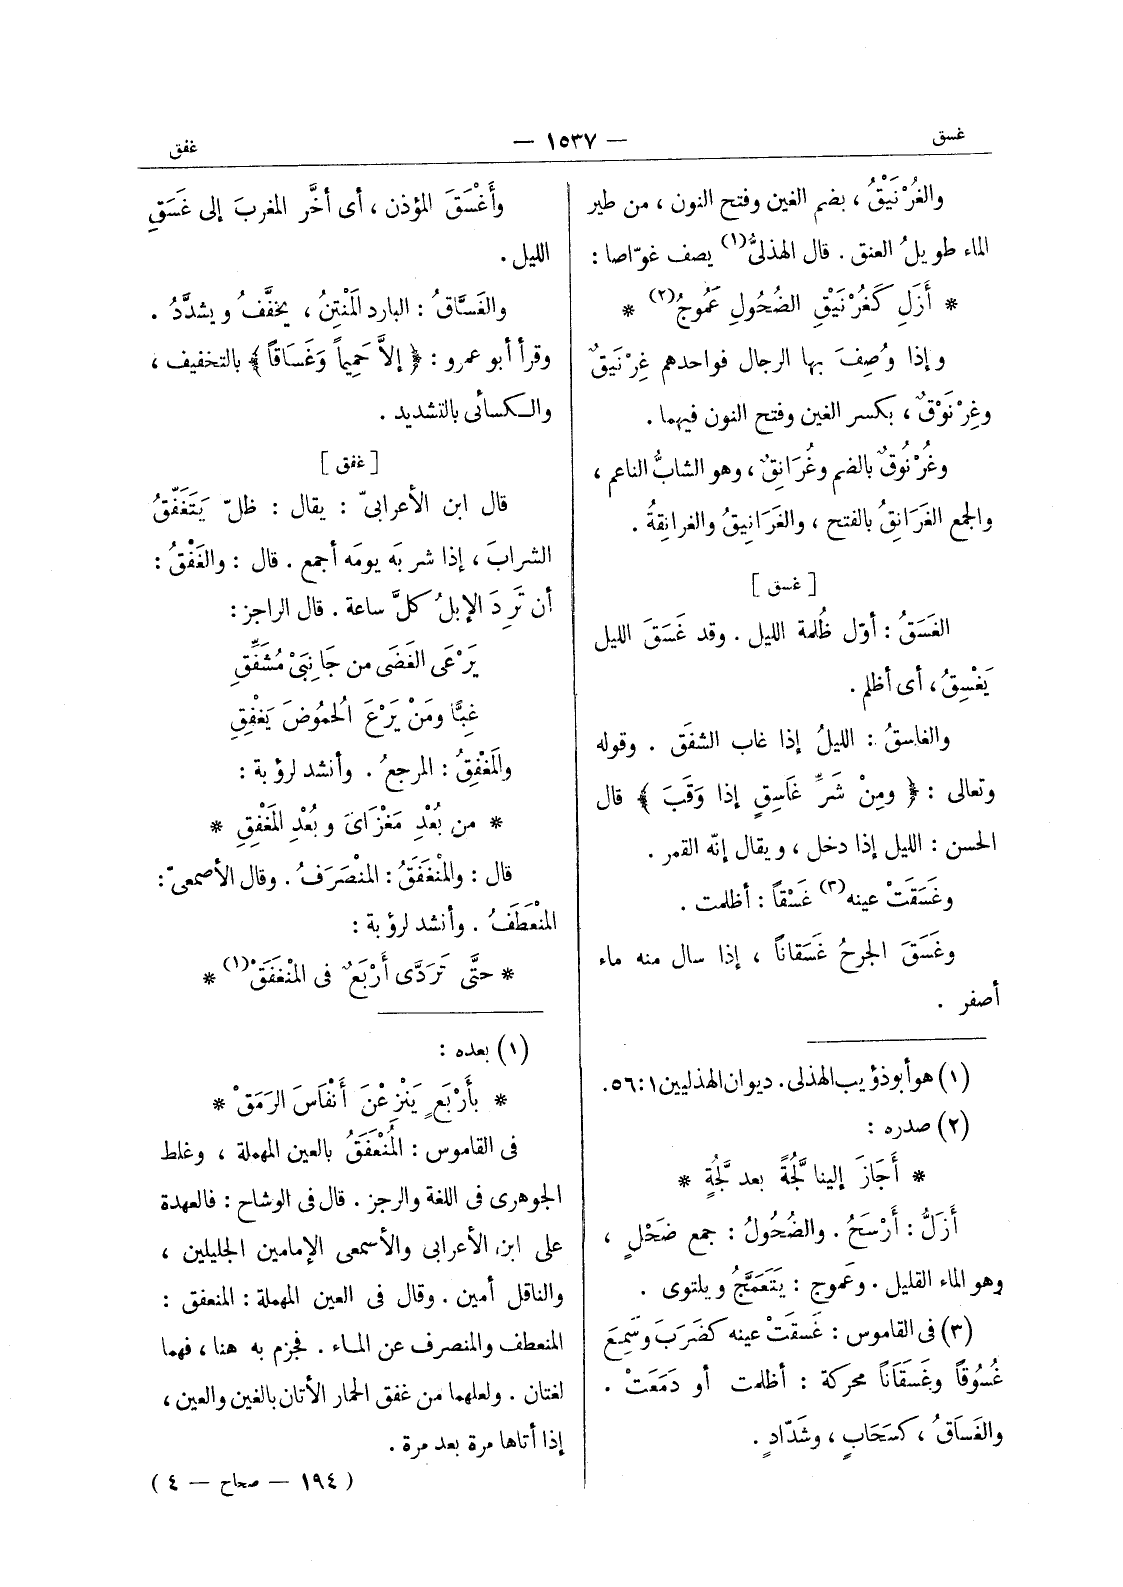 غسق
— ١٥٣٧ —
غفق
والغُرْنَيْقُ ، بضم الغين وفتح النون ، من طير
الماء طويلُ العنق . قال الهذلىُّ(١) يصف غوّاصا :
* أَزَل كَغُرْنَيْقِ الضُحُولِ عَمُوجُ(٢) *
وإذا وُصِفَ بها الرجال فواحدهم غِرْنَيقٌ
وغِرْنَوْقٌ ، بكسر الغين وفتح النون فيهما .
وغُرْنُوقٌ بالضم وغُرَانِقٌ ، وهو الشابُّ الناعم ،
والجمع الغَرَانِقُ بالفتح ، والغَرَانِيقُ والغرانِقةُ .
[ غسق ]
الغَسَقُ : أوّل ظُلمة الليل . وقد غَسَقَ الليل
يَغْسِقُ ، أى أظلم .
والغاسقُ : الليلُ إذا غاب الشفَق . وقوله
وتعالى : ﴿ ومِنْ شَرِّ غَاسِقٍ إذا وَقَبَ ﴾ قال
الحسن : الليل إذا دخل ، ويقال إنّه القمر .
وغَسَقَتْ عينه(٣) غَسْقاً : أظلمت .
وغَسَقَ الجرحُ غَسَقاناً ، إذا سال منه ماء
أصفر .
(١) هو أبو ذؤيب الهذلى . ديوان الهذليين ١ : ٥٦ .
(٢) صدره :
* أَجَازَ إلينا لُجَّةً بعد لُجَّةٍ *
أَزَلُّ : أَرْسَحُ . والضُحُولُ : جمع ضَحْلٍ ،
وهو الماء القليل . وعَموج : يَتَعَمَّجُ ويلتوى .
(٣) فى القاموس : غَسقَتْ عينه كضَرَبَ وسَمِعَ
غُسُوقاً وغَسَقَاناً محركة : أظلمت أو دَمَعَتْ .
والغَسَاقُ ، كسَحَابٍ ، وشَدّادٍ .
وأَغْسَقَ المؤذن ، أى أخَّر المغربَ إلى غَسَقِ
الليل .
والغَسَّاقُ : البارد المُنْتِنُ ، يخفَّفُ ويشدَّدُ .
وقرأ أبو عمرو : ﴿ إلاَّ حَمِيماً وَغَسَاقاً ﴾ بالتخفيف ،
والكسائى بالتشديد .
[ غفق ]
قال ابن الأعرابىّ : يقال : ظلّ يَتَغَفَّقُ
الشرابَ ، إذا شربَه يومَه أجمع . قال : والغَفْقُ :
أن تَرِدَ الإبلُ كلَّ ساعة . قال الراجز :
يَرْعَى الغَضَى من جَانِبَىْ مُشَفِّقِ
غِبًّا ومَنْ يَرْعَ الحُموُضَ يَغْفِقِ
والمَغْفِقُ : المرجعُ . وأنشد لرؤبة :
* من بُعْدِ مَغْزَاىَ وبُعْدِ المَغْفِقِ *
قال : والمُنْغَفَقُ : المُنْصَرَفُ . وقال الأصمعىّ :
المُنْعَطَفُ . وأنشد لرؤبة :
* حتَّى تَرَدَّى أَرْبَعٌ فى المُنْغَفَقْ(١) *
(١) بعده :
* بأَرْبَعٍ يَنْزِعْنَ أَنْفَاسَ الرَمَقْ *
فى القاموس : المُنْعَفَقُ بالعين المهملة ، وغلط
الجوهرى فى اللغة والرجز . قال فى الوشاح : فالعهدة
على ابن الأعرابى والأسمعى الإمامين الجليلين ،
والناقل أمين . وقال فى العين المهملة : المنعفق :
المنعطف والمنصرف عن الماء . فجزم به هنا ، فهما
لغتان . ولعلهما من غفق الحمار الأتان بالغين والعين ،
إذا أتاها مرة بعد مرة .
( ١٩٤ — صحاح — ٤ )